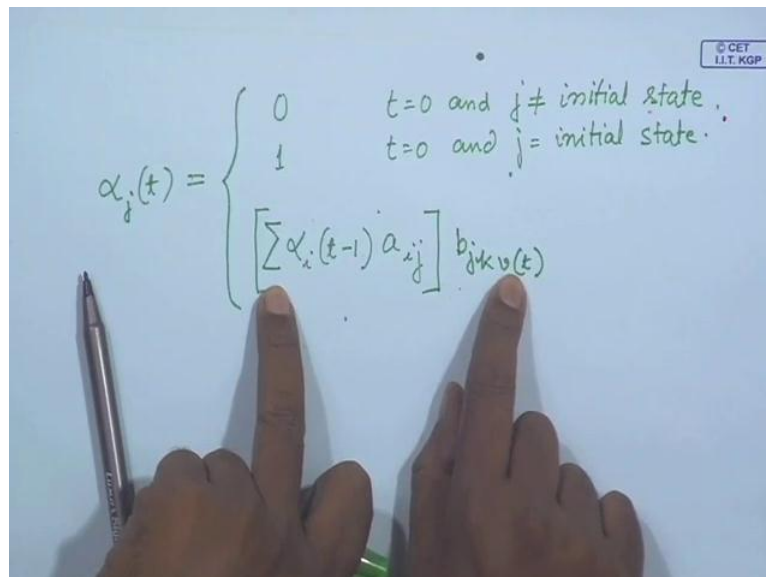 © CET
I.I.T. KGP
0 t=0 and j ≠ initial state.
1 t=0 and j = initial state.
α_j(t) =
[∑ α_i(t-1) a_ij] b_jk v(t)